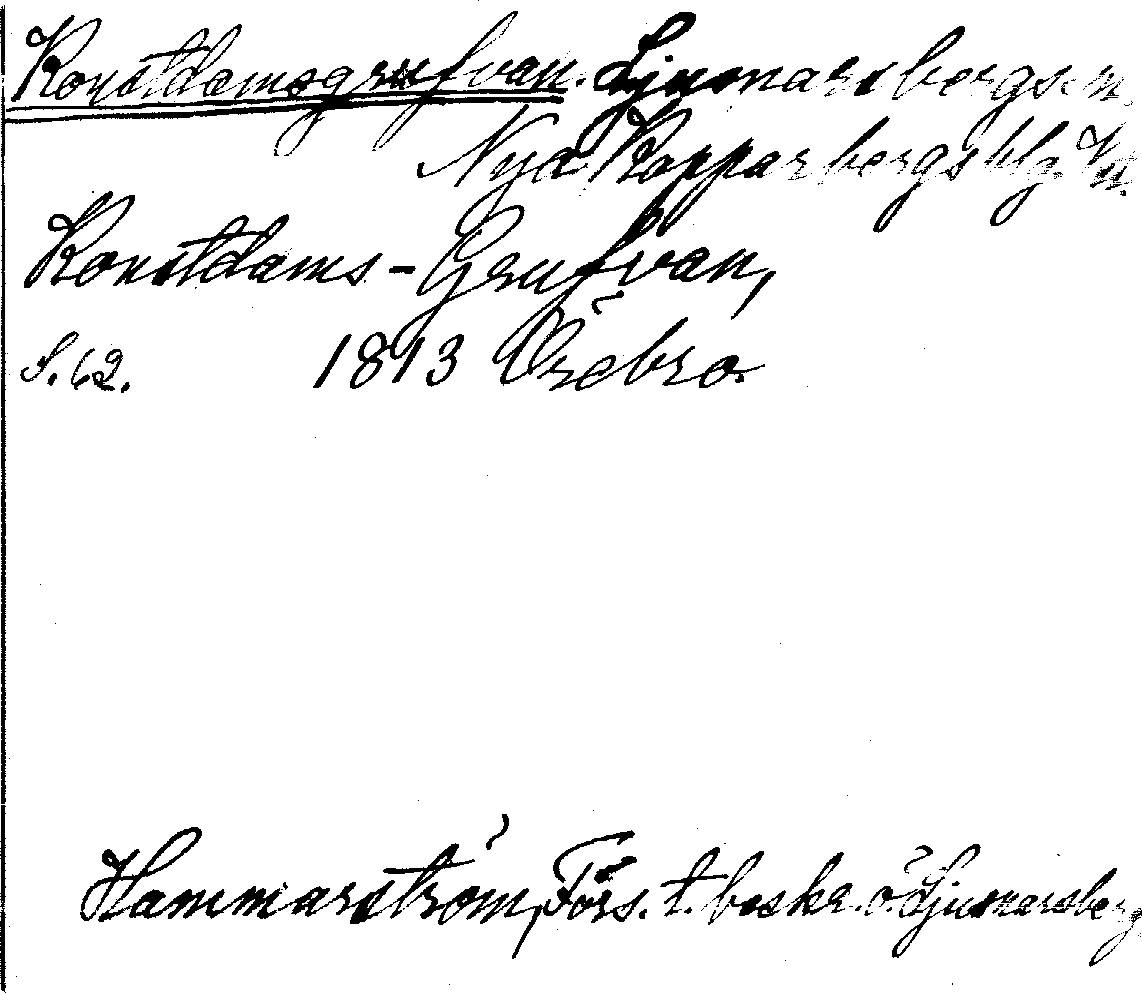 Konstdamsgrufvan. Ljusnarsbergs sn,
Nya Kopparbergs blg. Vn.
Konstdams-Grufvan,
S. 62. 1813 Örebro
Hammarström, Förs. t. beskr. ö. Ljusnarsberg